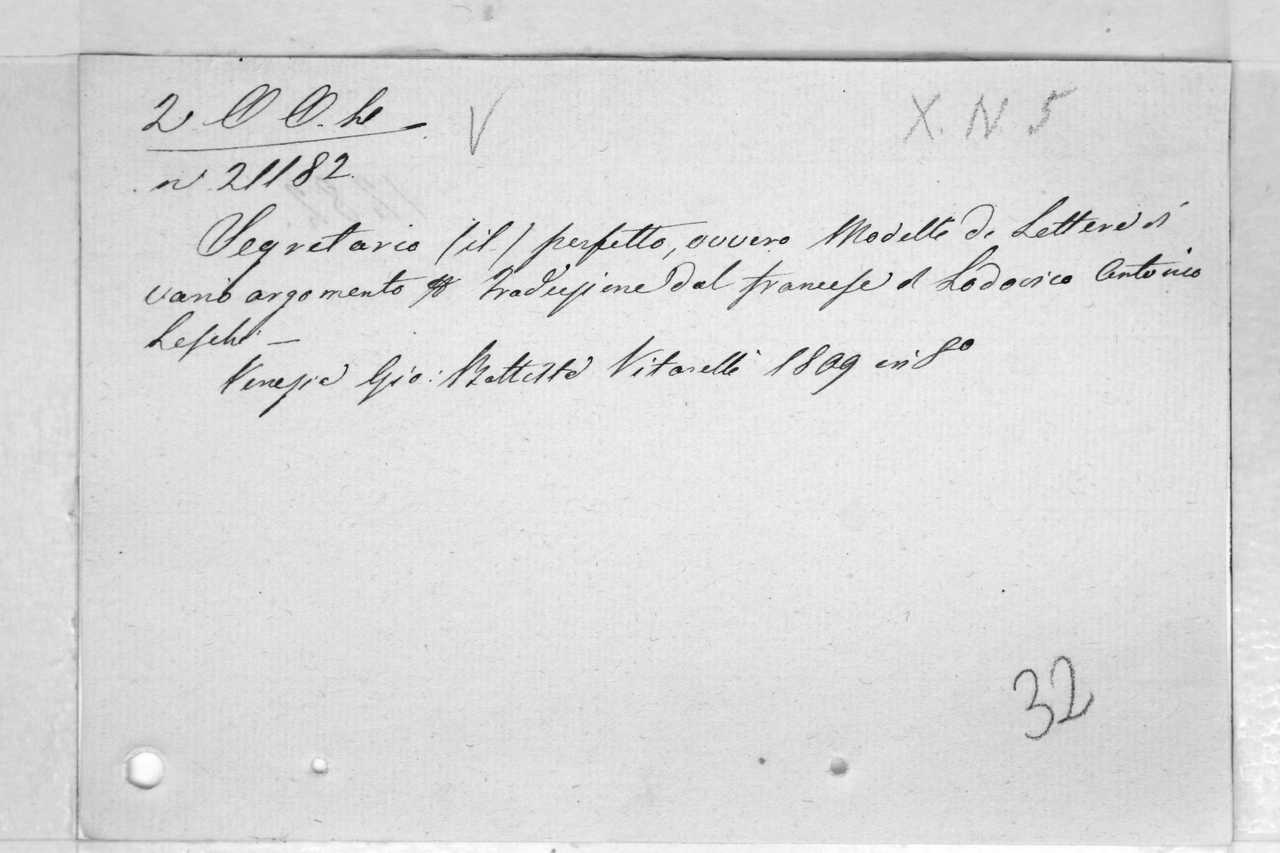 2 O O. h V X. N. 5
n 21182.
Segretario (il) perfetto, ovvero Modelli di Lettere di
vario argomento Traduzione dal francese di Lodovico Antonio
Leschi —
Venezia Gio: Battista Vitarelli 1809 in 8º
32